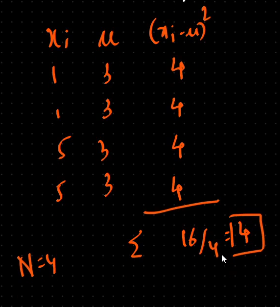 xi μ (xi-μ)²
1 3 4
1 3 4
5 3 4
5 3 4
Σ 16/4=4
N=4